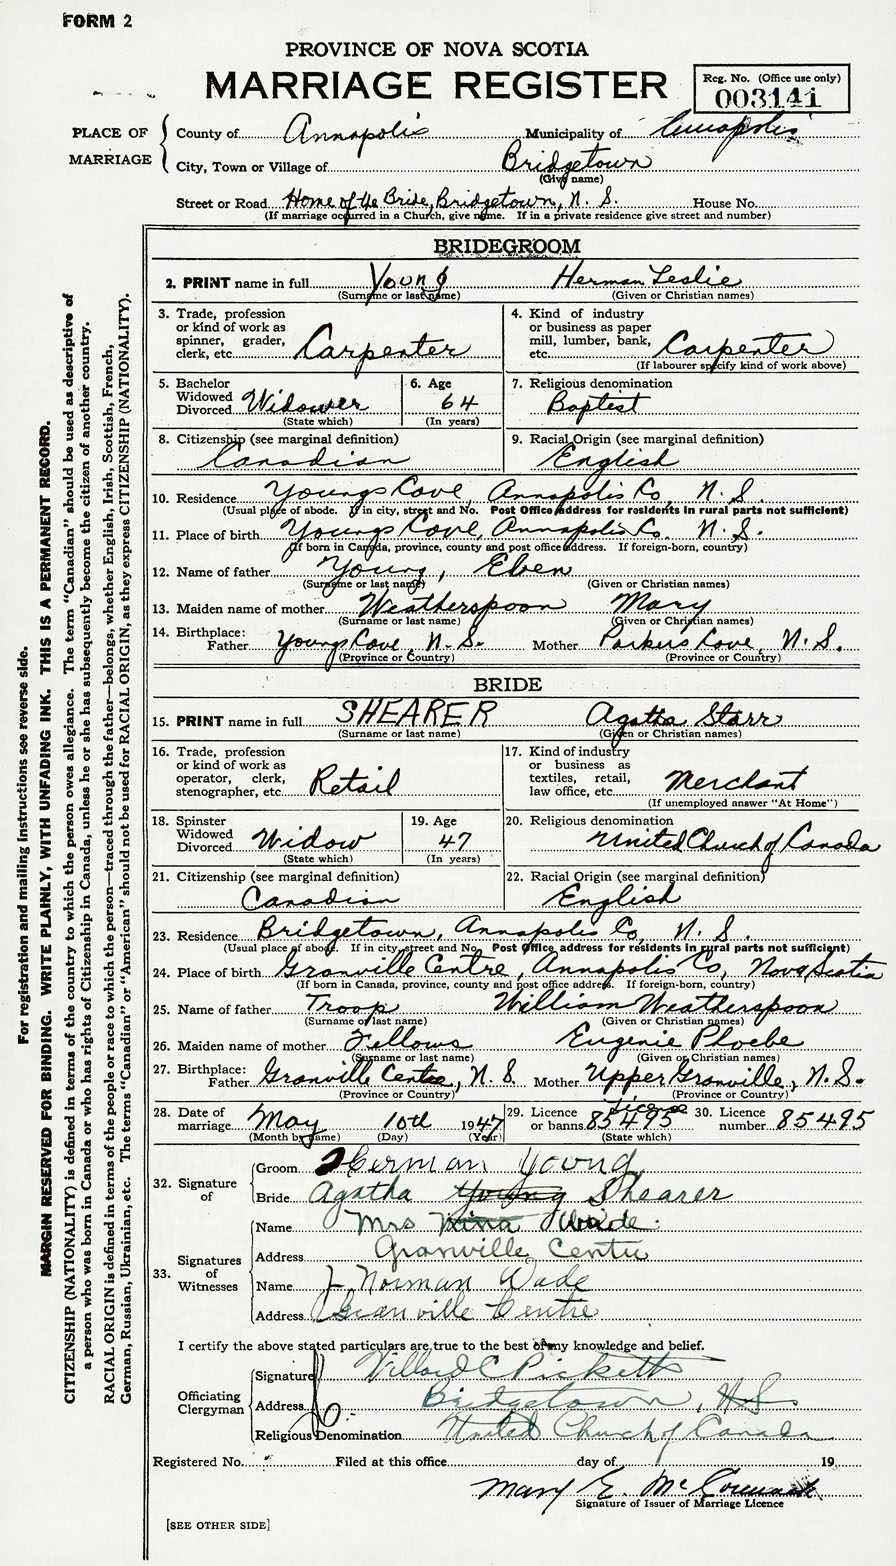 FORM 2
PROVINCE OF NOVA SCOTIA
MARRIAGE REGISTER
Reg. No. (Office use only)
003141
PLACE OF MARRIAGE
County of Annapolis Municipality of Annapolis
City, Town or Village of Bridgetown
(Give name)
Street or Road Home of the Bride, Bridgetown, N. S. House No.
(If marriage occurred in a Church, give name. If in a private residence give street and number)
BRIDEGROOM
2. PRINT name in full Young Herman Leslie
(Surname or last name) (Given or Christian names)
3. Trade, profession or kind of work as spinner, grader, clerk, etc. Carpenter
4. Kind of industry or business as paper mill, lumber, bank, etc. Carpenter
(If labourer specify kind of work above)
5. Bachelor Widowed Divorced Widower
(State which)
6. Age 64
(In years)
7. Religious denomination
Baptist
8. Citizenship (see marginal definition)
Canadian
9. Racial Origin (see marginal definition)
English
10. Residence Youngs Cove, Annapolis Co, N. S.
(Usual place of abode. If in city, street and No. Post Office address for residents in rural parts not sufficient)
11. Place of birth Youngs Cove, Annapolis Co. N. S.
(If born in Canada, province, county and post office address. If foreign-born, country)
12. Name of father Young, Eben
(Surname or last name) (Given or Christian names)
13. Maiden name of mother Weatherspoon Mary
(Surname or last name) (Given or Christian names)
14. Birthplace: Father Youngs Cove, N. S. Mother Parkers Cove, N. S.
(Province or Country) (Province or Country)
BRIDE
15. PRINT name in full SHEARER Agatha Starr
(Surname or last name) (Given or Christian names)
16. Trade, profession or kind of work as operator, clerk, stenographer, etc. Retail
17. Kind of industry or business as textiles, retail, law office, etc. Merchant
(If unemployed answer "At Home")
18. Spinster Widowed Divorced Widow
(State which)
19. Age 47
(In years)
20. Religious denomination
United Church of Canada
21. Citizenship (see marginal definition)
Canadian
22. Racial Origin (see marginal definition)
English
23. Residence Bridgetown, Annapolis Co, N. S.
(Usual place of abode. If in city, street and No. Post Office address for residents in rural parts not sufficient)
24. Place of birth Granville Centre, Annapolis Co, Nova Scotia
(If born in Canada, province, county and post office address. If foreign-born, country)
25. Name of father Troop William Weatherspoon
(Surname or last name) (Given or Christian names)
26. Maiden name of mother Fellows Eugenie Phoebe
(Surname or last name) (Given or Christian names)
27. Birthplace: Father Granville Centre, N. S. Mother Upper Granville, N. S.
(Province or Country) (Province or Country)
28. Date of marriage May 10th 1947
(Month by name) (Day) (Year)
29. Licence or banns License 85495
(State which)
30. Licence number 85495
32. Signature of
Groom Herman Young
Bride Agatha Young Shearer
33. Signatures of Witnesses
Name Mrs Nina Wade
Address Granville Centre
Name J. Norman Wade
Address Granville Centre
I certify the above stated particulars are true to the best of my knowledge and belief.
Officiating Clergyman
Signature Willard C Picketts
Address Bridgetown, N S
Religious Denomination United Church of Canada
Registered No. Filed at this office day of 19
Mary E. McCormack
Signature of Issuer of Marriage Licence
[SEE OTHER SIDE]
For registration and mailing instructions see reverse side.
MARGIN RESERVED FOR BINDING. WRITE PLAINLY, WITH UNFADING INK. THIS IS A PERMANENT RECORD.
CITIZENSHIP (NATIONALITY) is defined in terms of the country to which the person owes allegiance. The term "Canadian" should be used as descriptive of
a person who was born in Canada or who has rights of Citizenship in Canada, unless he or she has subsequently become the citizen of another country.
RACIAL ORIGIN is defined in terms of the people or race to which the person—traced through the father—belongs, whether English, Irish, Scottish, French,
German, Russian, Ukrainian, etc. The terms "Canadian" or "American" should not be used for RACIAL ORIGIN, as they express CITIZENSHIP (NATIONALITY).